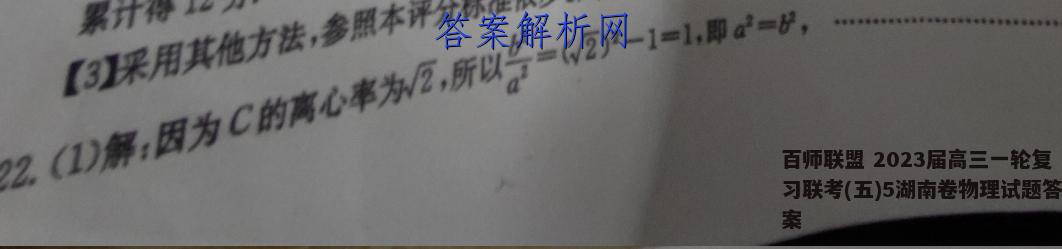 累计得12分.
【3】采用其他方法,参照本评分标准依
答案解析网
22.(1)解:因为C的离心率为√2,所以b²/a²=(√2)²-1=1,即a²=b²,
百师联盟 2023届高三一轮复
习联考(五)5湖南卷物理试题答
案